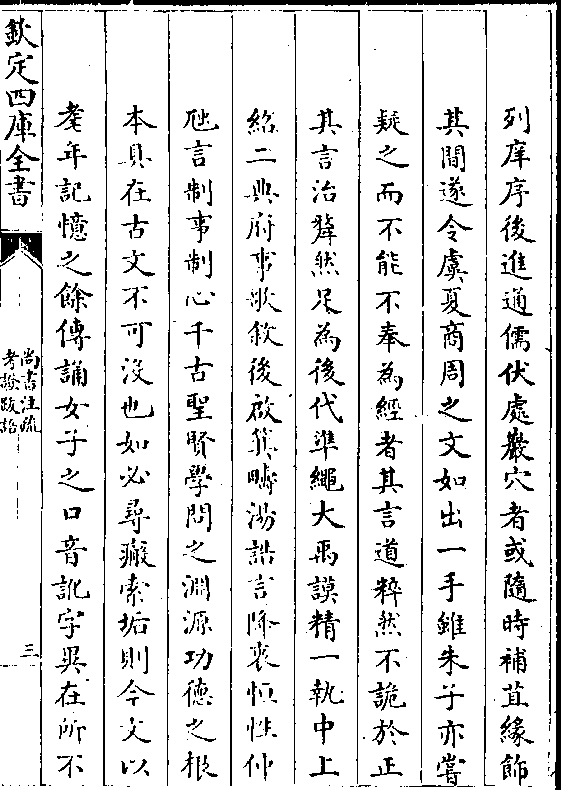 列庠序後進通儒伏處巖穴者或隨時補苴緣飾
其間遂令虞夏商周之文如出一手雖朱子亦嘗
疑之而不能不奉為經者其言道粹然不詭於正
其言治犖然足為後代準繩大禹謨精一執中上
紹二典府事歌敘後啟箕疇湯誥言降衷恒性仲
虺言制事制心千古聖賢學問之淵源功德之根
本具在古文不可沒也如必尋瘢索垢則今文以
耄年記憶之餘傳誦女子之口音訛字異在所不
欽定四庫全書
尚書注疏
考證跋語
三